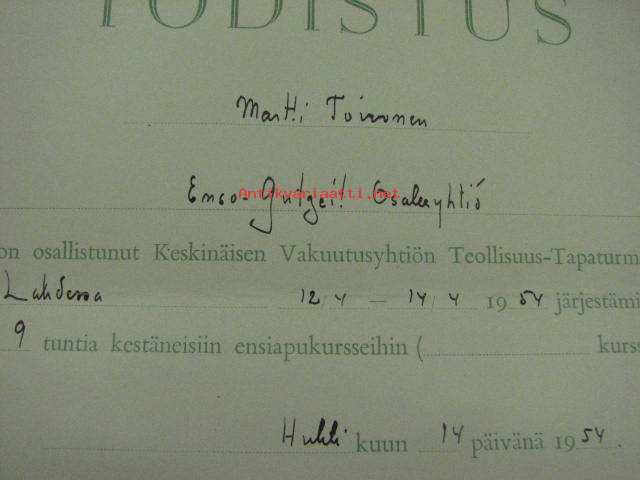 TODISTUS
Martti Toivonen
Enso-Gutzeit Osakeyhtiö
Antikvariaatti.net
on osallistunut Keskinäisen Vakuutusyhtiön Teollisuus-Tapaturm
Lahdessa 12/4 – 14/4 1954 järjestämi
9 tuntia kestäneisiin ensiapukursseihin ( kurs
Huhti kuun 14 päivänä 1954.